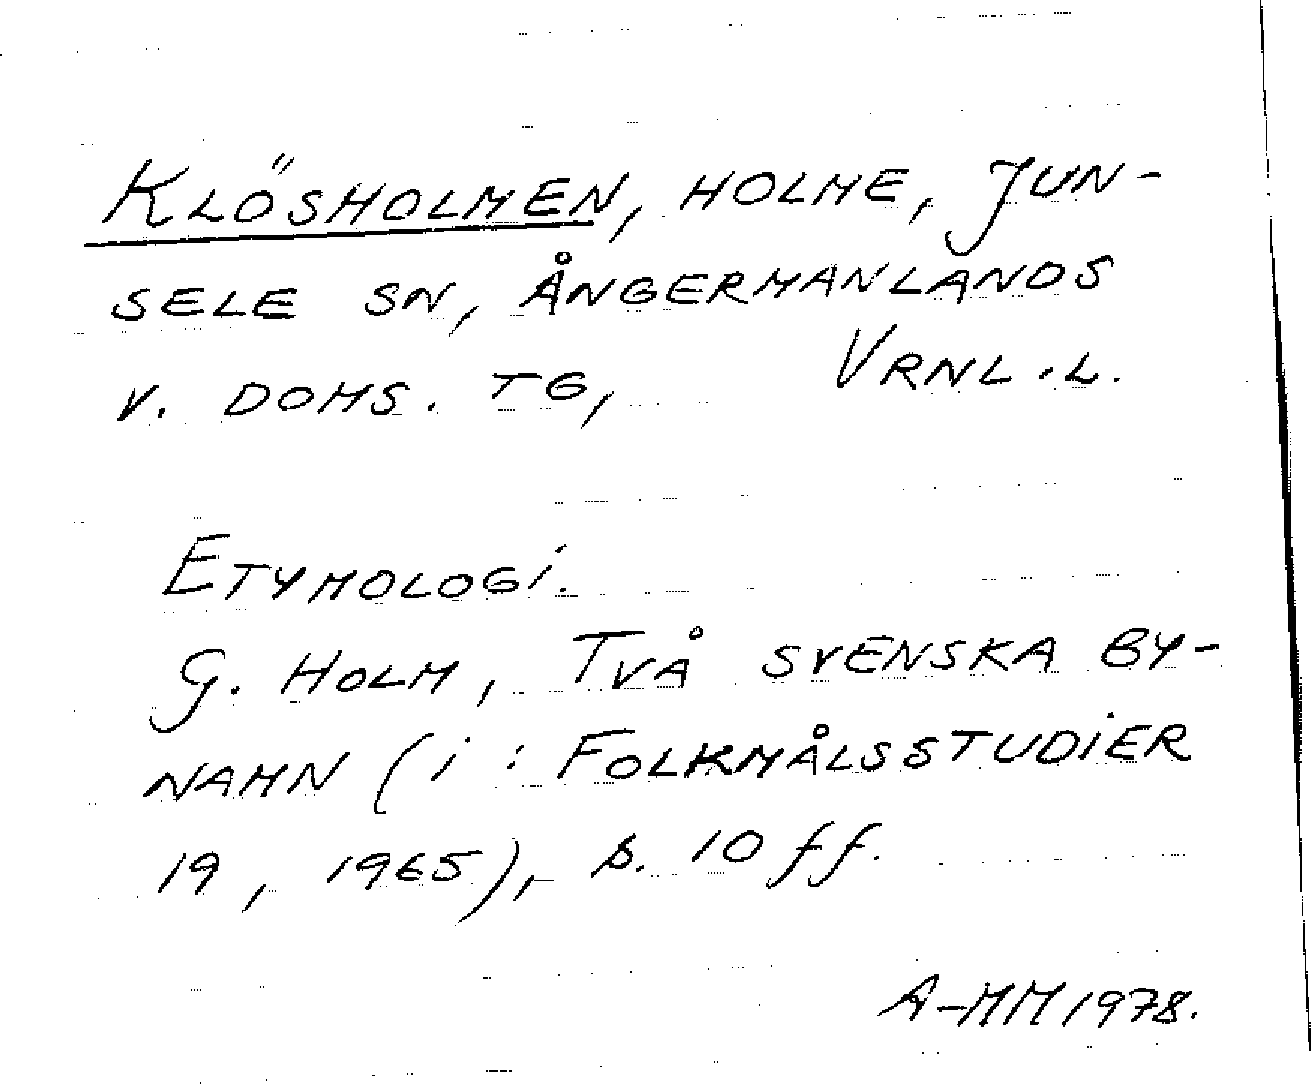 KLÖSHOLMEN, HOLME, JUN-
SELE SN, ÅNGERMANLANDS
V. DOMS. TG, VRNL. L.
ETYMOLOGI.
G. HOLM, TVÅ SVENSKA BY-
NAMN (i: FOLKMÅLSSTUDIER
19, 1965), s. 10 ff.
A-MM 1978.